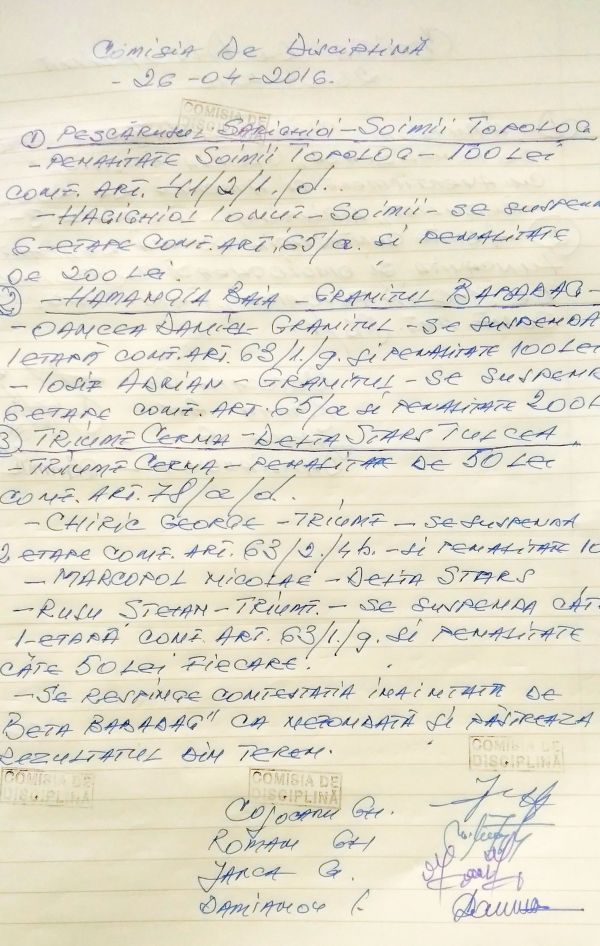 COMISIA DE DISCIPLINĂ
- 26 -04 -2016.
COMISIA DE
DISCIPLINĂ
① PESCĂRUSUL SARIGHIOI - SOIMII TOPOLOG
- PENALITATE SOIMII TOPOLOG - 100 LEI
CONF. ART. 41/2/1./d.
- HAGIGHIOL IONUT - SOIMII - SE SUSPENDA
6 - ETAPE CONF. ART. 65/a. SI PENALITATE
DE 200 LEI.
② - HAMANGIA BAIA - GRANITUL BABADAG -
- OANCEA DANIEL - GRANITUL - SE SUSPENDĂ
1 ETAPĂ CONF. ART. 63/1./g. SI PENALITATE 100 LEI
- IOSIF ADRIAN - GRANITUL - SE SUSPEN
6 ETAPE CONF. ART. 65/a SI PENALITATE 200 L
3) TRIUMF CERNA - DELTA STARS TULCEA
- TRIUMF CERNA - PENALITATE DE 50 LEI
CONF. ART. 78/a/d.
- CHIRIC GEORGE - TRIUMF - SE SUSPENDĂ
2 ETAPE CONF. ART. 63/2./4b. - SI PENALITATE 10
- MARCOPOL NICOLAE - DELTA STARS
- RUSU STEFAN - TRIUMF. - SE SUSPENDA CÂT
1 - ETAPĂ CONF. ART. 63/1./g. SI PENALITATE
CÂTE 50 LEI FIECARE.
- SE RESPINGE CONTESTATIA ÎNAINTATĂ DE
BETA BABADAG" CA NEFONDATĂ SI PĂSTREAZA
REZULTATUL DIN TEREN.
COMISIA DE
DISCIPLINĂ
COMISIA DE
DISCIPLINĂ
COMISIA DE
DISCIPLINĂ
COJOCARU GH.
ROMAN GH
IANCA G.
DAMIANOV